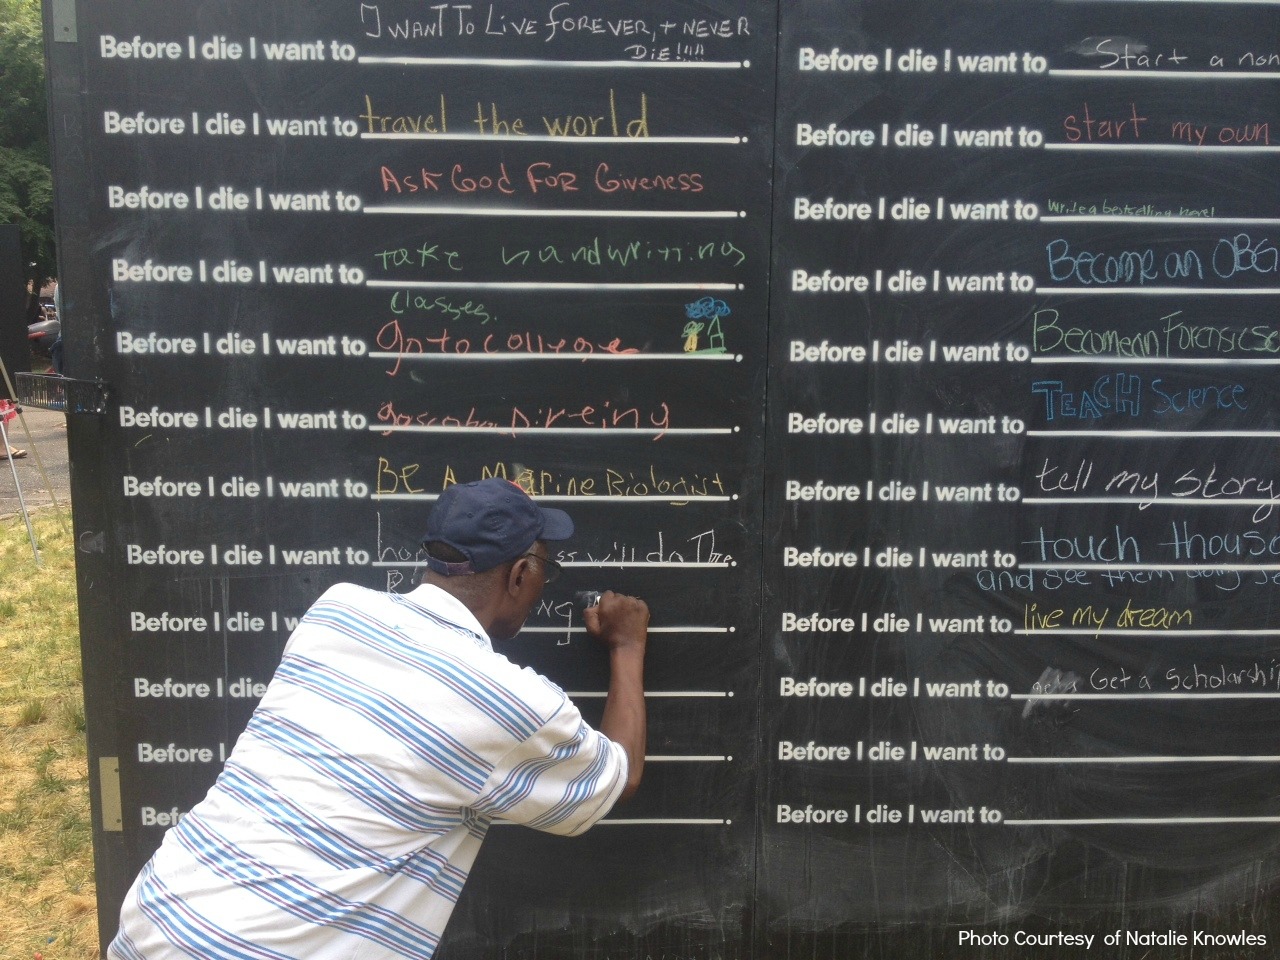 I WANT TO LIVE FOREVER, + NEVER
Before I die I want to DIE!!!! .
Before I die I want to travel the world .
Before I die I want to ASK GOD FOR Giveness .
Before I die I want to TAKE HANDWRITING .
classes.
Before I die I want to go to college .
Before I die I want to Direing .
Before I die I want to BE A Marine Biologist .
Before I die I want to will do The .
Before I die I w NG .
Before I die .
Before I .
Bef .
Before I die I want to Start a non
Before I die I want to start my own
Before I die I want to write a bestselling novel
Before I die I want to Become an OBG
Before I die I want to Become an Forensic Sc
Before I die I want to TEACH Science
Before I die I want to tell my story
Before I die I want to touch thousa
and see them
Before I die I want to live my dream
Before I die I want to Get a Scholarship
Before I die I want to
Before I die I want to
Photo Courtesy of Natalie Knowles